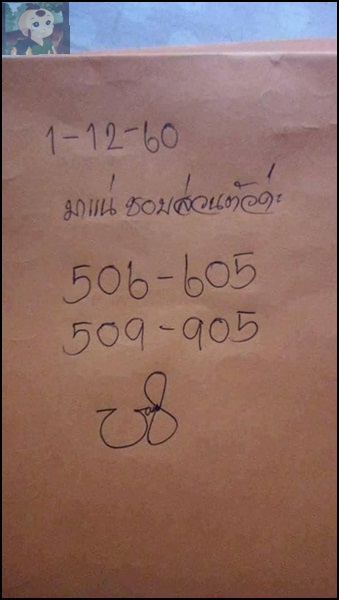 1-12-60
มาแน่ ชอบส่วนตัวค่ะ
506-605
509-905